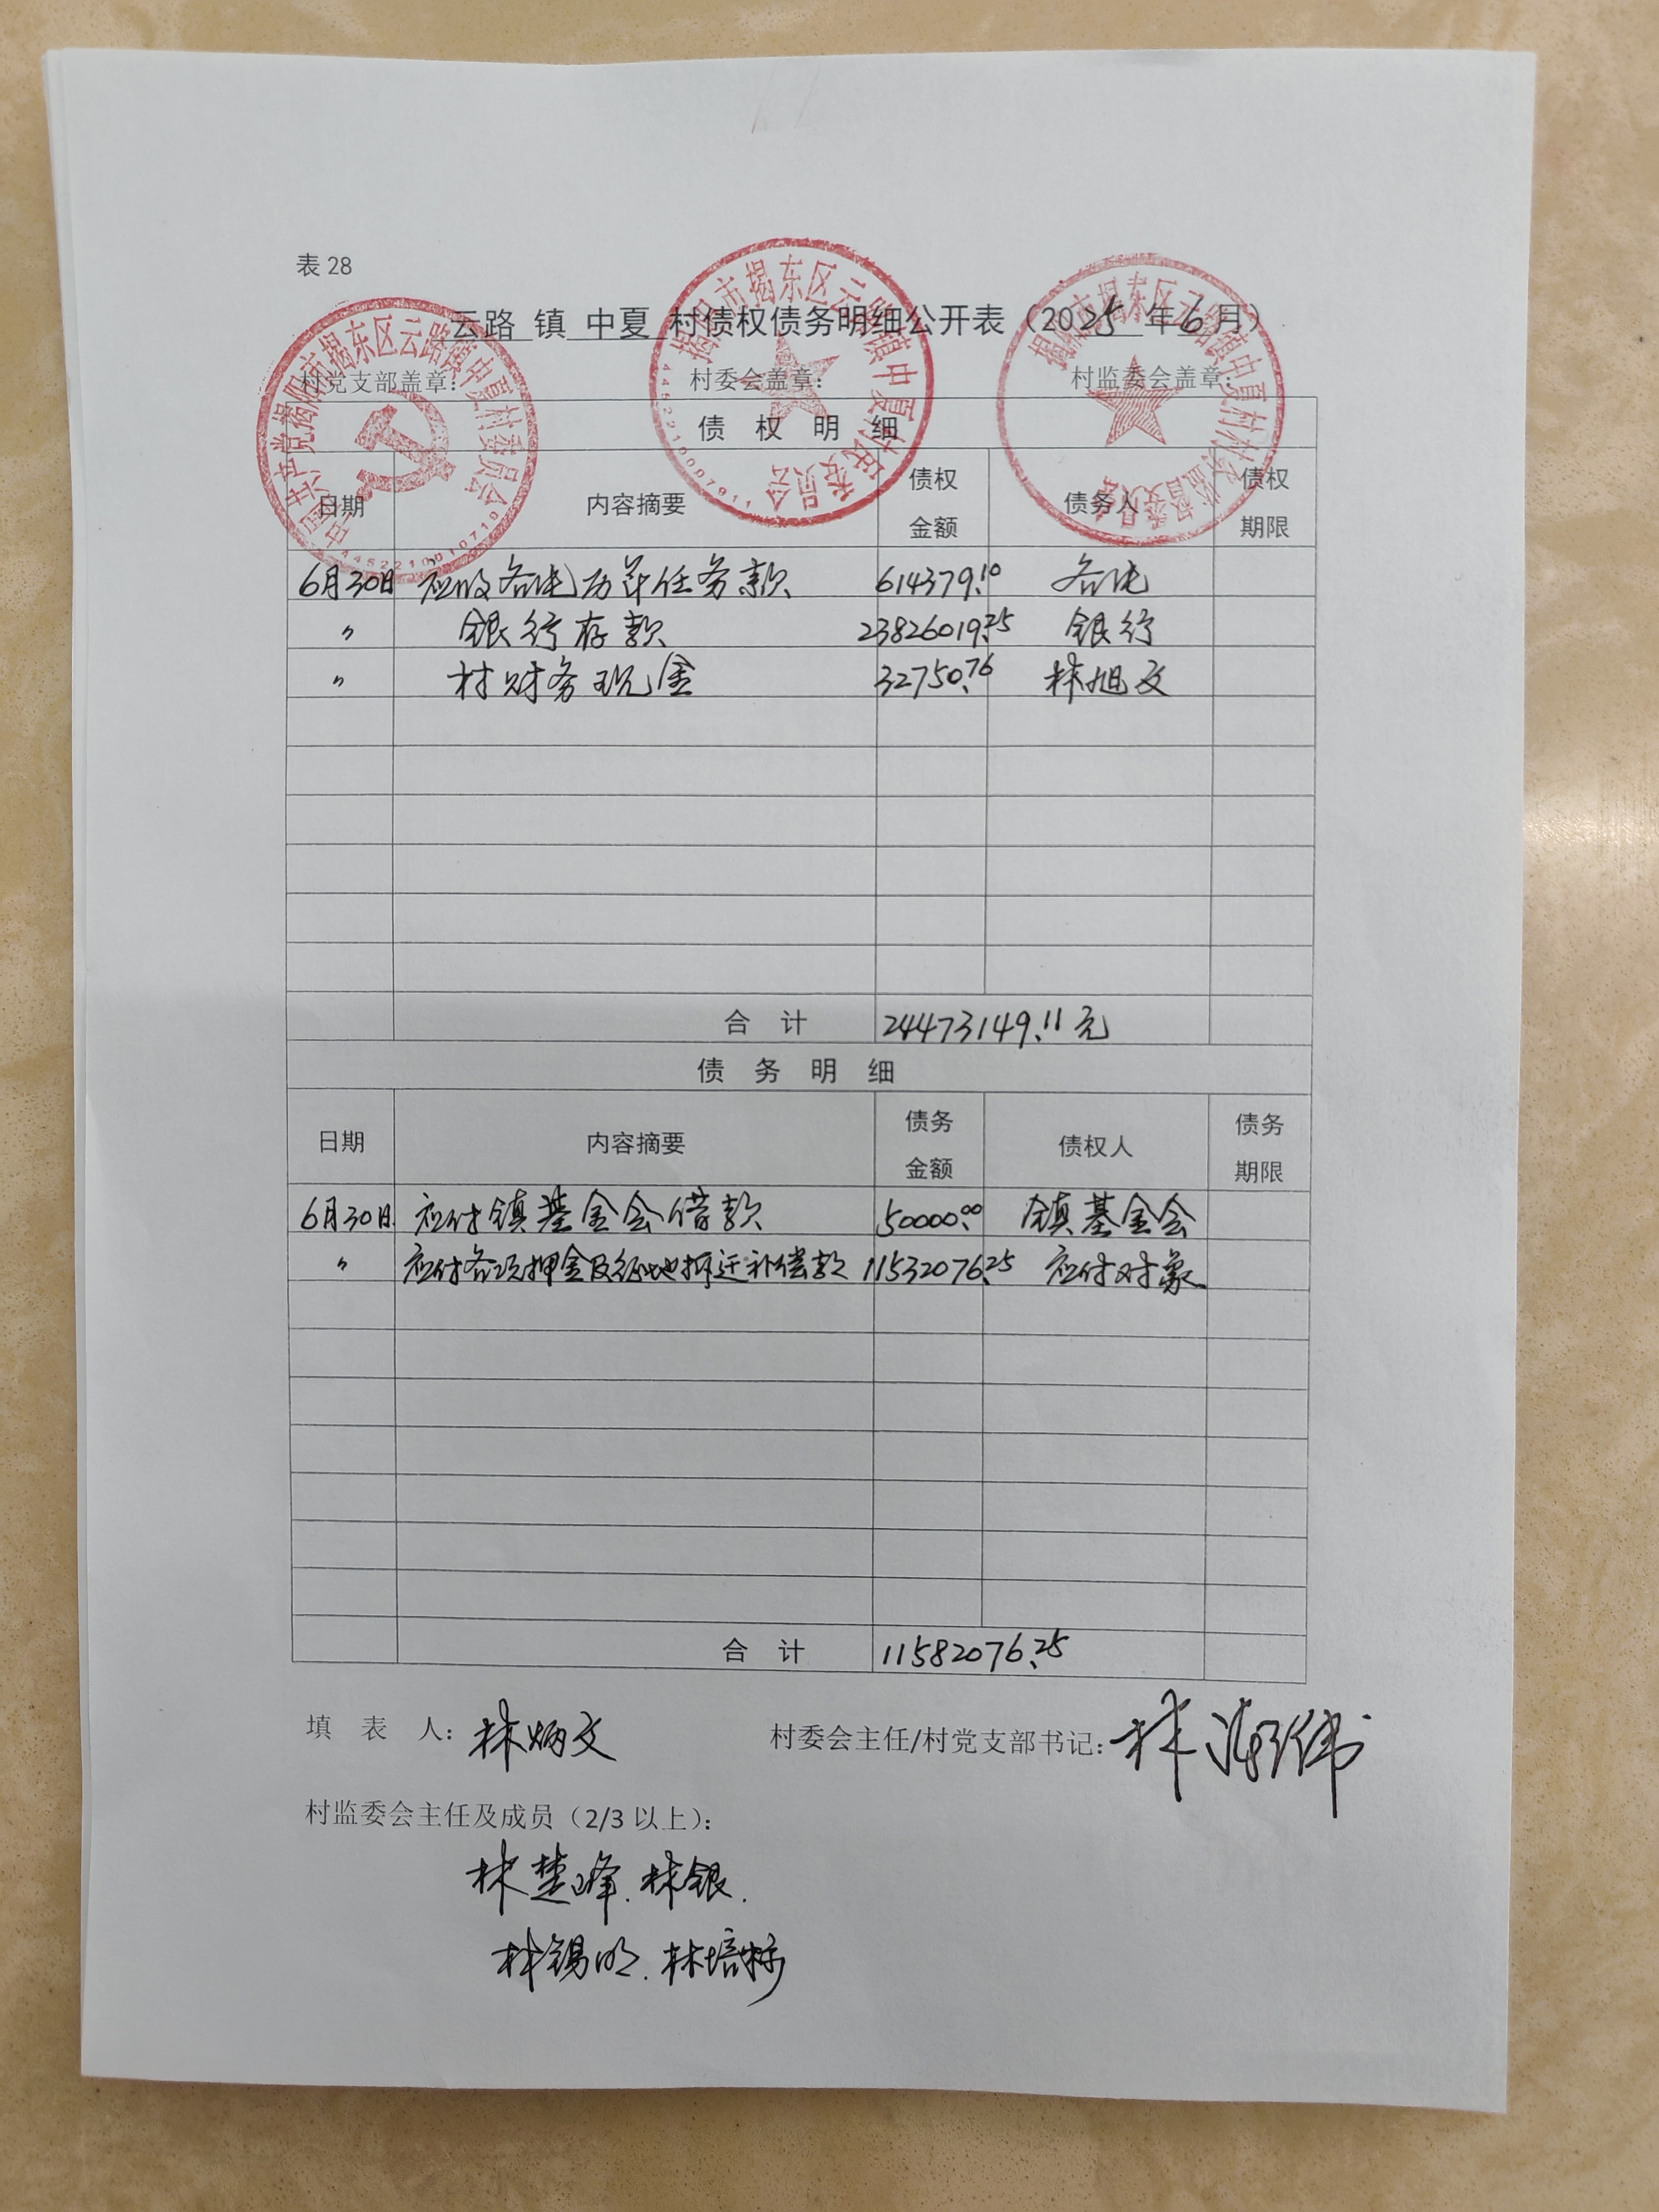 表 28
云路 镇 中夏 村债权债务明细公开表（2025 年 6 月）
村党支部盖章： 村委会盖章： 村监委会盖章：
中国共产党揭阳市揭东区云路镇中夏村委员会
揭阳市揭东区云路镇中夏村村民委员会
4452210007911
揭阳市揭东区云路镇中夏村村务监督委员会
债 权 明 细
日期 内容摘要 债权金额 债务人 债权期限
6月30日 应收各电历年任务款 614379.10 各电
〃 银行存款 23826019.25 银行
〃 村财务现金 32750.76 林旭文
合 计 24473149.11元
债 务 明 细
日期 内容摘要 债务金额 债权人 债务期限
6月30日 应付镇基金会借款 50000.00 镇基金会
〃 应付各项押金及征地拆迁补偿款 11532076.25 应付对象
合 计 11582076.25
填 表 人：林炳文 村委会主任/村党支部书记：林海伟
村监委会主任及成员（2/3 以上）：
林楚峰.林银.
林锡明.林培标